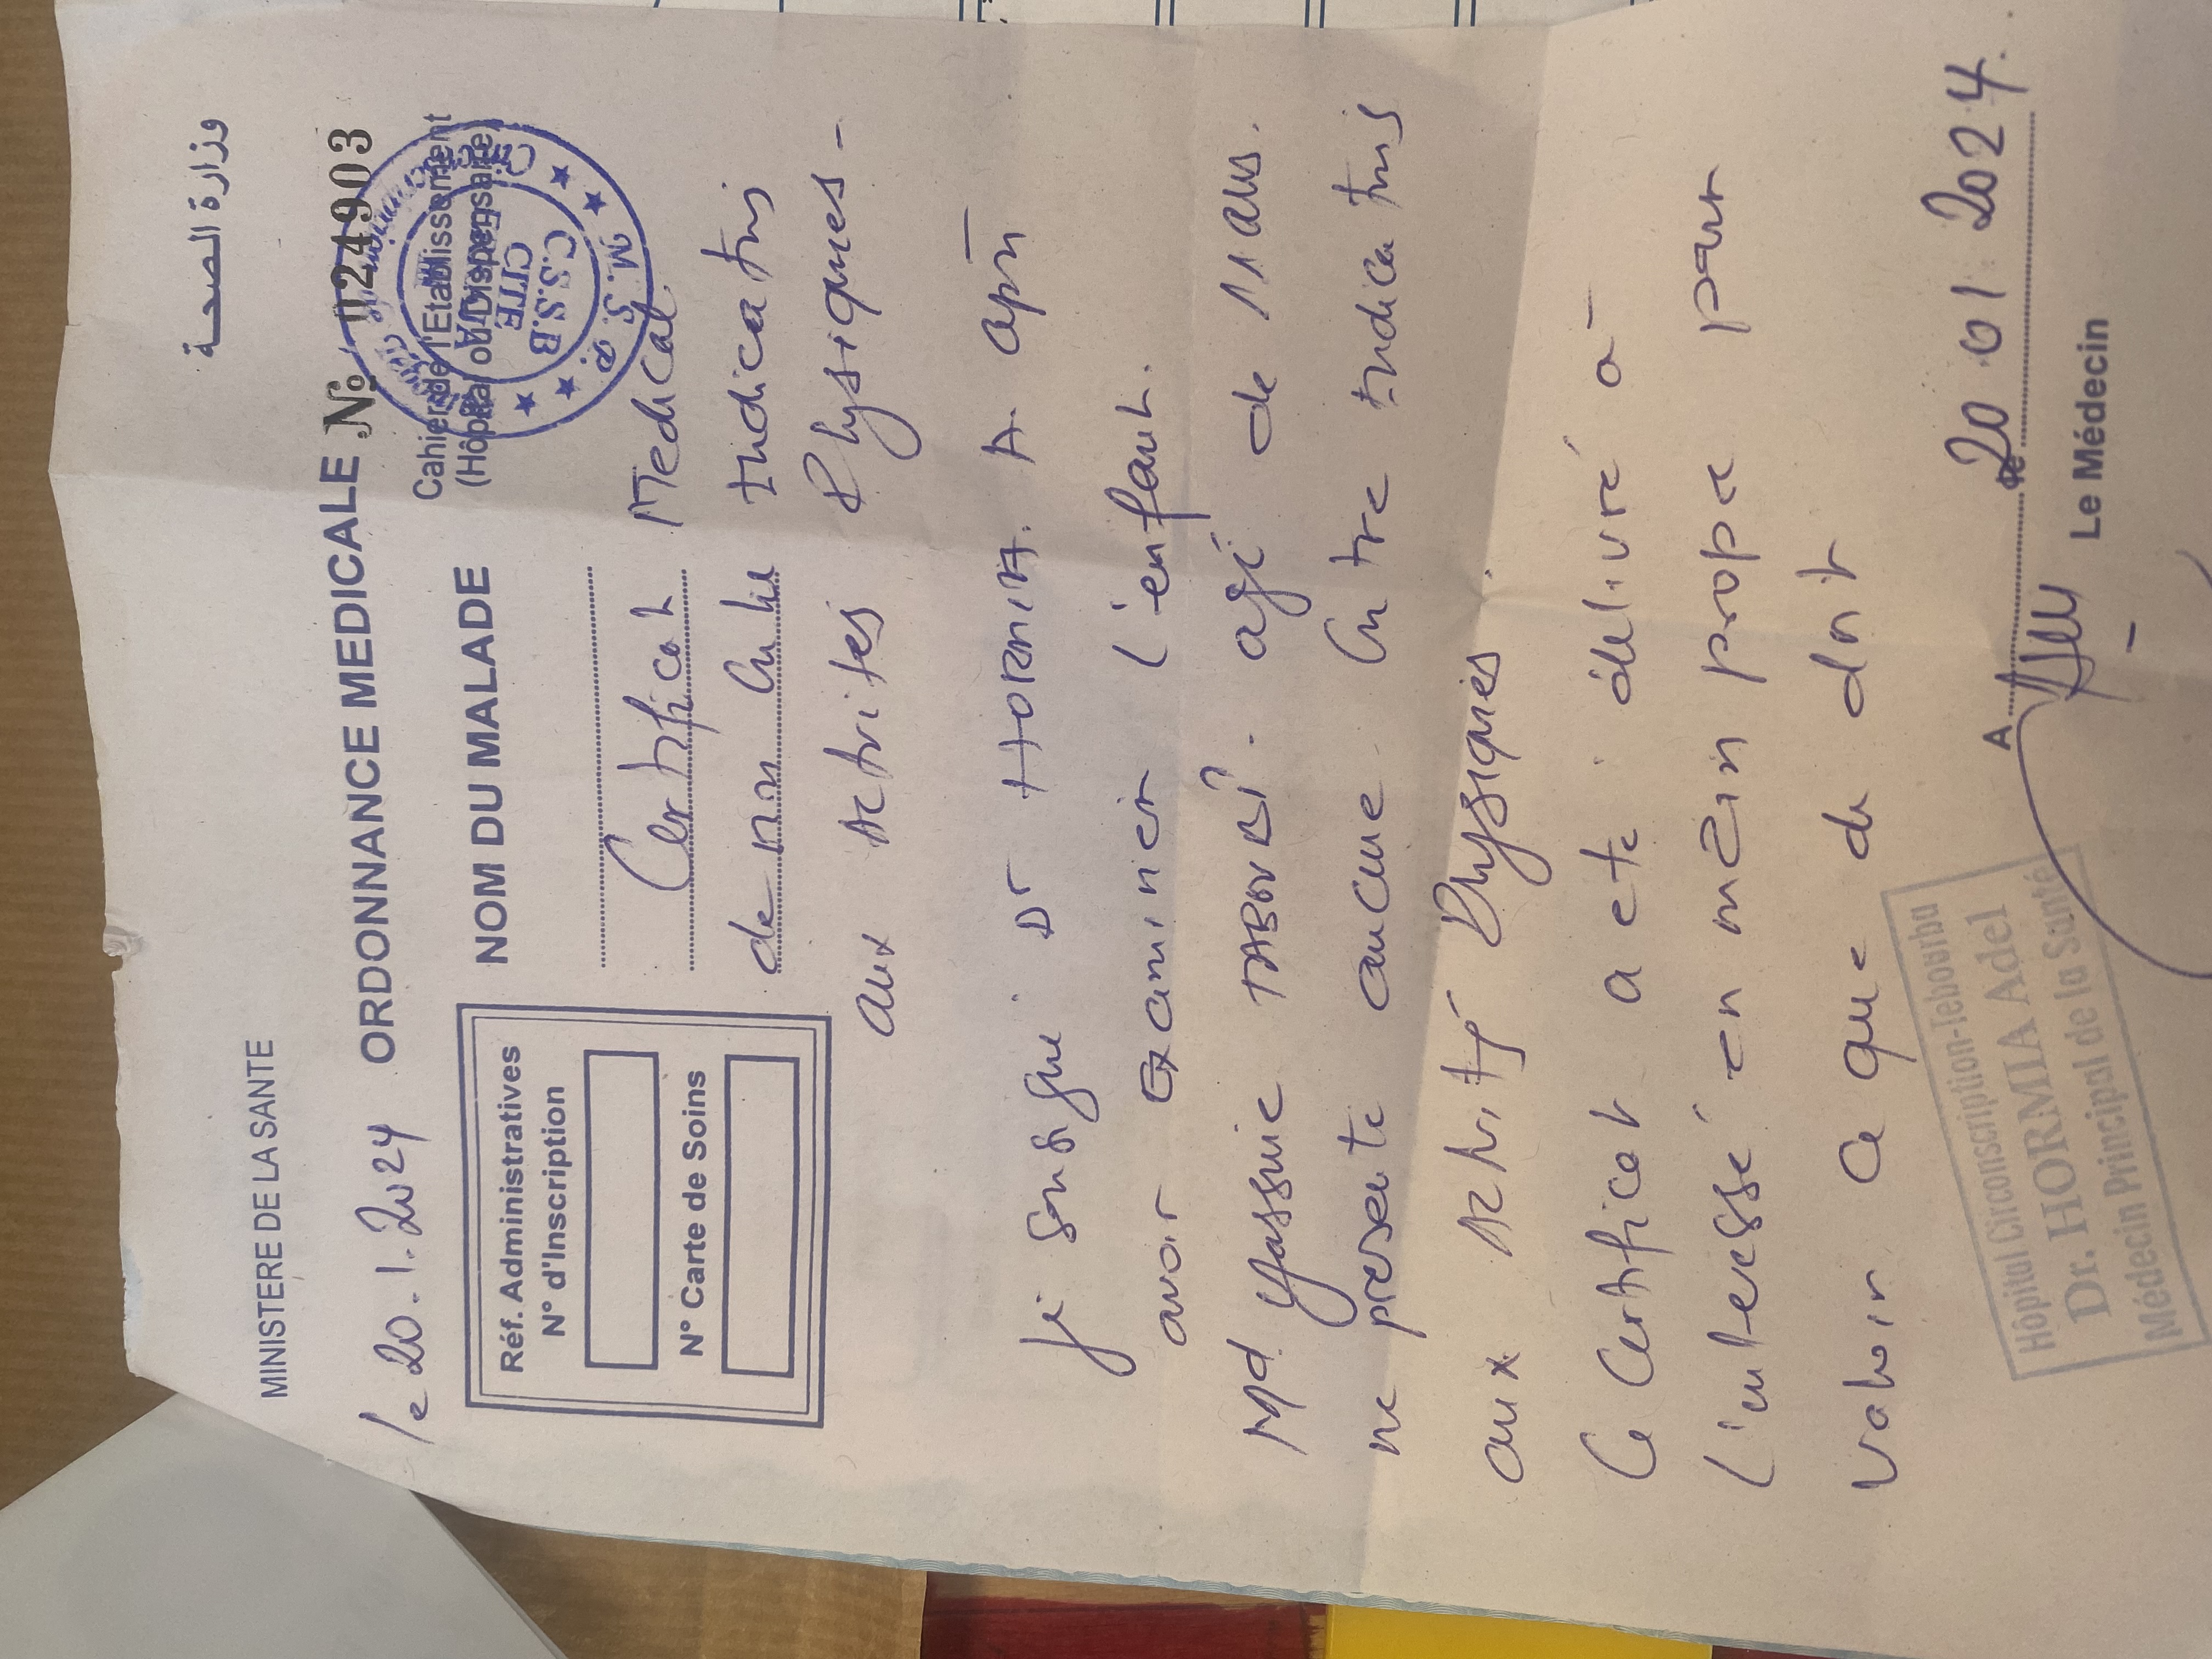 MINISTERE DE LA SANTE
وزارة الصحة
le 20.1.2024 ORDONNANCE MEDICALE № 024903
Réf. Administratives
N° d'Inscription
N° Carte de Soins
NOM DU MALADE
Cahier de l'Etablissement
(Hôpital ou Dispensaire)
C.S.S.B
CITE
M.S.P.
Certificat Medical.
de non Contre indications
aux Activités Physiques-
Je soussigné Dr HORMIA. A après
avoir examiner l'enfant.
Md Yassine TABOUBI. agé de 11 ans.
ne presente aucune Contre indications
aux Activités Physiques.
Ce Certificat a eté délivré à
l'interessé en main propre pour
valoir ce que de doit
A le 20 01 2024.
Le Médecin
Hôpital Circonscription-Tebourba
Dr. HORMIA Adel
Médecin Principal de la Santé